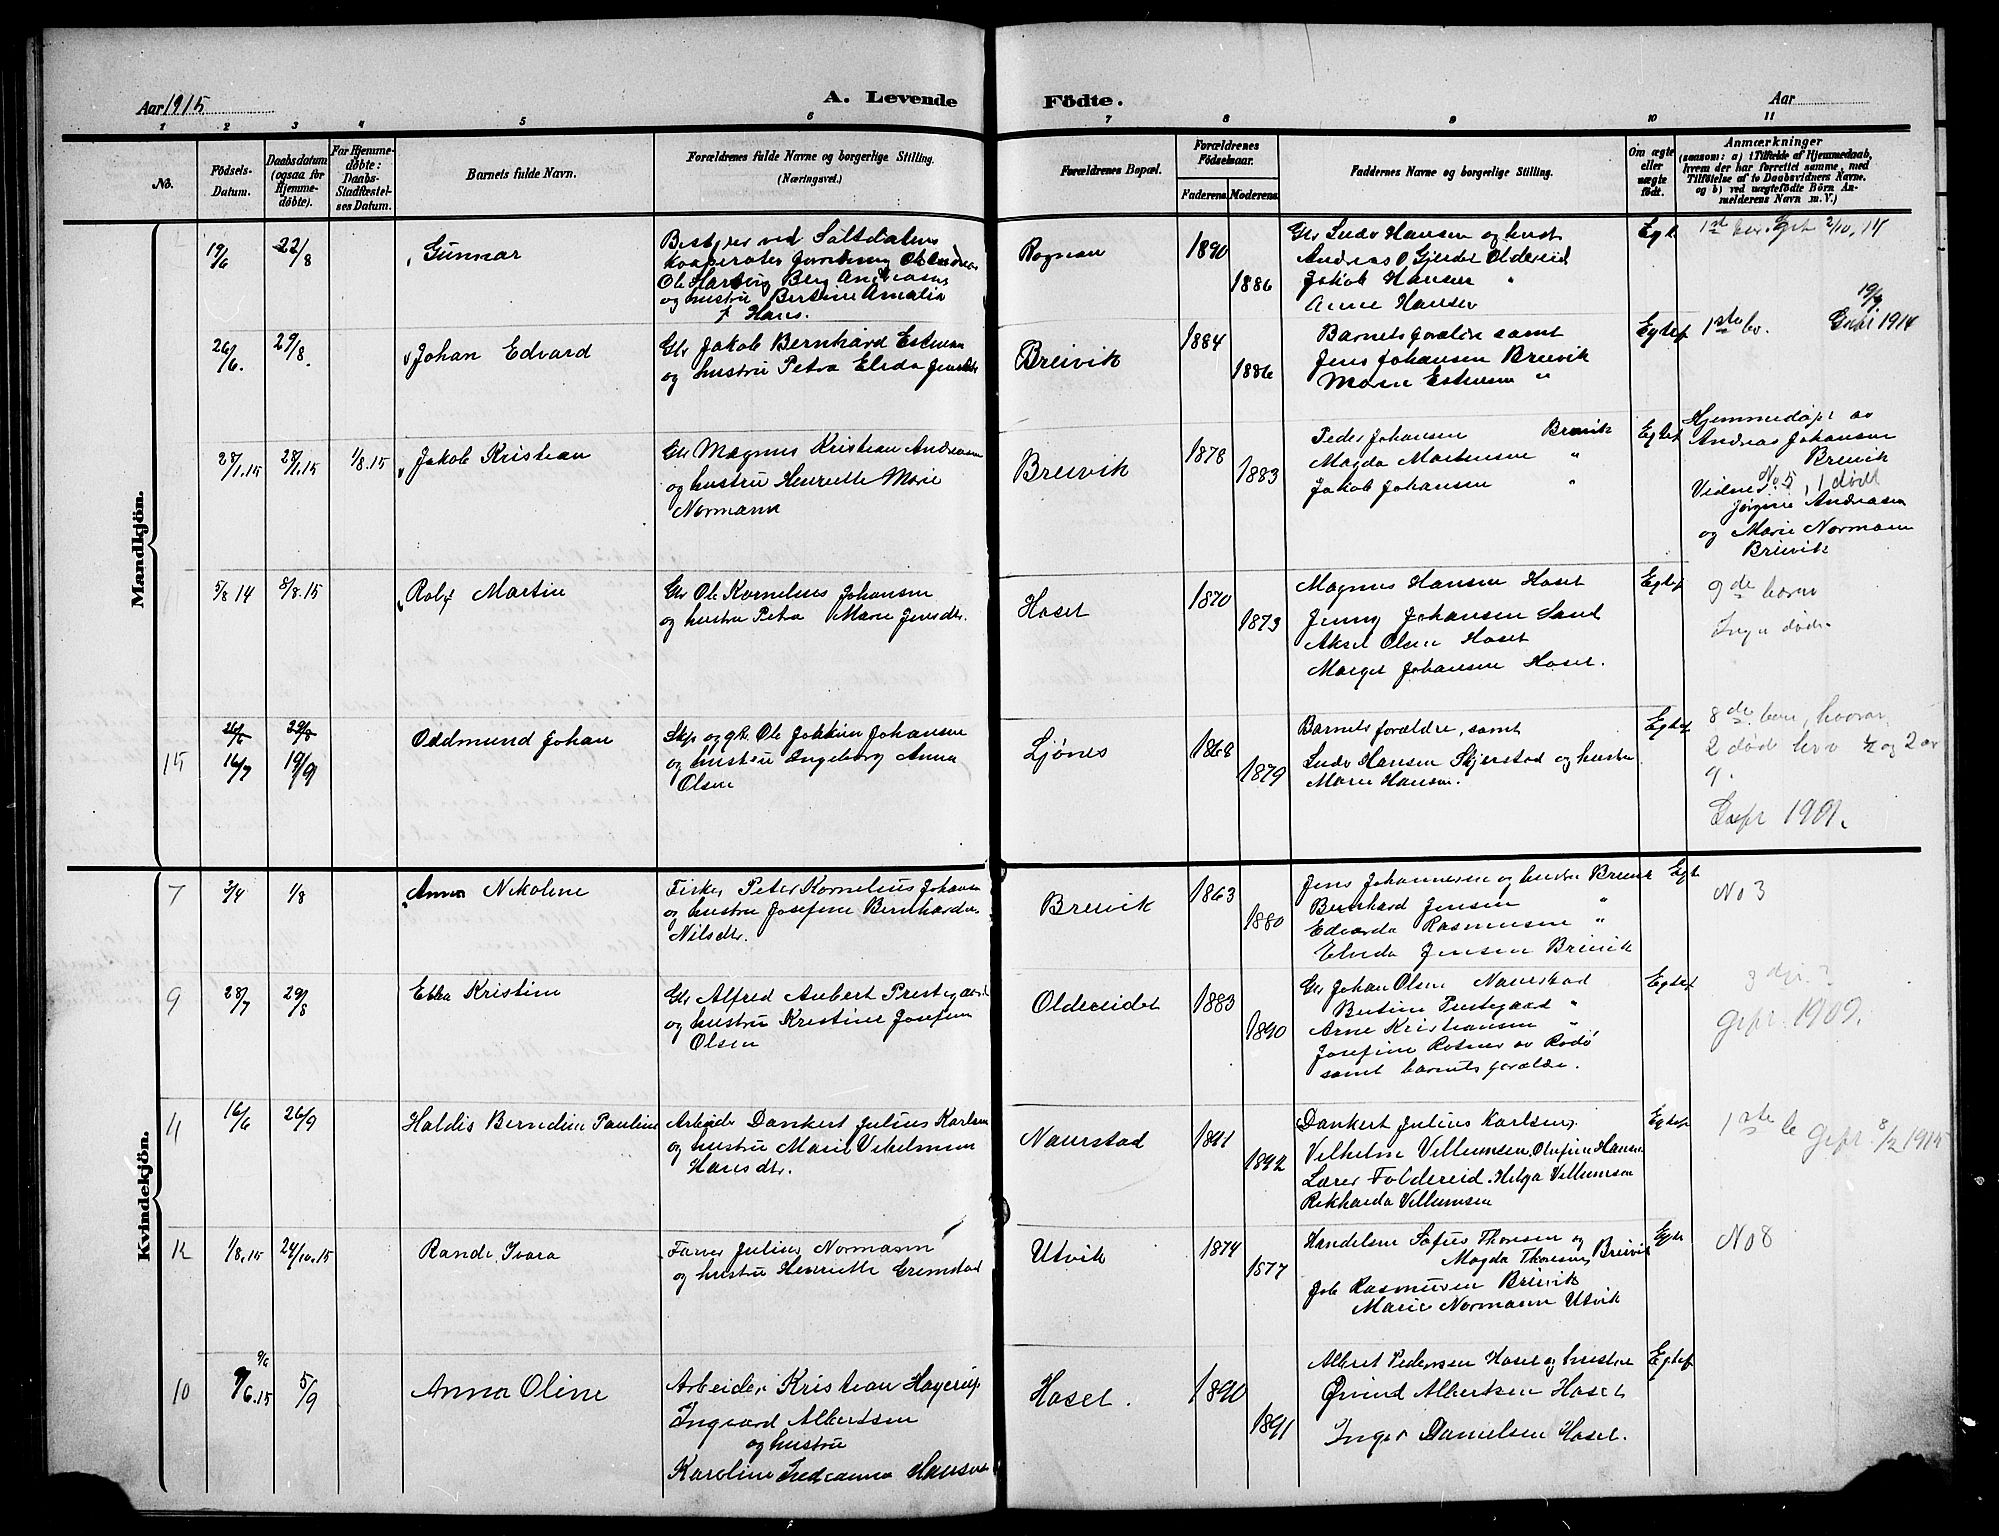 Aar 1915
A. Levende
Födte.
Aar
1 2 3 4 5 6 7 8 9 10 11
No.
Födsels-
Datum.
Daabsdatum
(ogsaa for
Hjemme-
døbte).
For Hjemme-
døbte:
Daabs-
Stadfæstel-
ses Datum.
Barnets fulde Navn.
Forældrenes fulde Navne og borgerlige Stilling.
(Næringsvei.)
Forældrenes Bopæl.
Forældrenes
Födselsaar.
Faderens.
Moderens.
Faddernes Navne og borgerlige Stilling.
Om ægte
eller
uægte
født.
Anmærkninger
(saasom: a) i Tilfælde af Hjemmedaab,
hvem der har forrettet samme, med
Tilføielse af to Daabsvidners Navne.
og b) ved uægtefödte Börn An-
melderens Navn m. V.)
Mandkjön.
19/6 22/8
Gunnar
Bestyrer ved Saltdalens
og hustru Bertine Amalia
Hans.
Rognan
1890
1886
Gbr Ludv Hansen og hust
Andreas O Gjerdet Oldereid
Jakob Hansen "
Anne Hansen
Egte
26/6. 29/8.
Johan Edvard
Gbr Jakob Bernhard
og hustru Petra Elida
Breivik
1884
1886
Barnets foraldre samt
Jens Johansen Breivik
"
Egtef
1ste b.
19/9
1914
28/1.15 28/1.15 1/8.15
Jakob Kristian
Gbr Magnus Kristian Andreasen
og hustru Henriette Marie
Normann
Breivik
1878
1883
Peder Johansen Breivik
Magda Martinsen "
Jakob Johansen "
Egtef
Hjemmedøpt av
Andreas Johansen
Breivik
No 5, 1 dødt
Andreasen
og Marie Normann
Breivik
5/8 14 8/8.15
Rolf Martin
Gbr Ole Kornelius Johansen
og hustru Petra Marie Jensdtr.
Hoset
1870
1873
Magnus Hansen Hoset
Jenny Johansen Sand
Aksel Olsen Hoset
Marget Johansen Hoset.
Egtef
9de barn
Ingen døde
15
26/6 29/8
16/7 19/9
Oddmund Johan
Skp og gbr Ole Jokkim Johansen
og hustru Ingeborg Anna
Olsen
Ljønes
1868
1879
Barnets forældre, samt
Ludv Hansen Skjerstad og hustru
Marie Hansen.
Egtef
8de barn, hvorav
2 død
1901.
Kvindekjön.
7
3/4 1/8
Anna Nikoline
Fisker Peter Kornelius Johansen
og hustru Josefine Bernharda
Nilsdtr.
Breivik
1863
1880
Jens Johannesen og hustru Breivik
Bernhard Jensen "
Edvarda Rasmussen "
Elvida Jensen Breivik
Egte
No 3
9
28/7 29/8
Ebba Kristine
Gbr Alfred Aubert Prestegaard
og hustru Kristine Josefine
Olsen
Oldereidet
1883
1890
Gbr Johan Olsen Naurstad
Bertine Prestegaard "
Arne Kristiansen "
Josefine
samt barnets forældre.
Egtef
1909.
11
16/6 26/9
Haldis Berndine Pauline
Arbeider Dankert Julius Karlsen
og hustru Marie Vilhelmine
Hansdtr.
Naurstad
1891
1892
Dankert Julius Karlsen,
Vilhelm Villumsen, Olufine Hansen
Lærer Foldereid. Helga Villumsen
Rikharda Villumsen
Egtef
1ste b 8/2 1915
12
1/8.15 24/10.15
Randi Ivara
Farver Julius Normann
og hustru Henriette Gremstad
Utvik
1874
1877
Handelsm Sofus Thoresen og
Magda Thoresen, Breivik
Joh Rasmussen Breivik
Marie Normann Utvik
Egte
No 8
10
9/6
9/6.15 5/9
Anna Oline
Arbeider Kristian Hagerup
Ingvard Albertsen
og hustru
Karoline Hansen
Hoset.
1890
1891
Albret Pedersen Hoset og hustru
Øivind Albertsen Hoset
Inger Danielsen Hoset.
Egtef